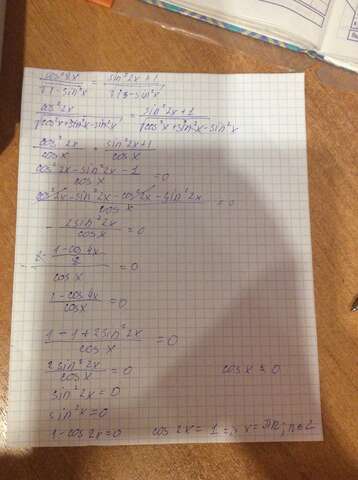 cos²2x / √1-sin²x = sin²2x+1 / √1-sin²x
cos²2x / √cos²x+sin²x-sin²x = sin²2x+1 / √cos²x+sin²x-sin²x
cos²2x / cos x = sin²2x+1 / cos x
cos²2x-sin²2x-1 / cos x = 0
cos²2x-sin²2x-cos²2x-sin²2x / cos x = 0
- 2sin²2x / cos x = 0
- 2· 1-cos4x / 2 / cos x = 0
1-cos4x / cos x = 0
1-1+2sin²2x / cos x = 0
2sin²2x / cos x = 0 cos x ≠ 0
sin²2x = 0
sin²x = 0
1-cos2x=0 cos 2x = 1 => x = πn; n∈Z